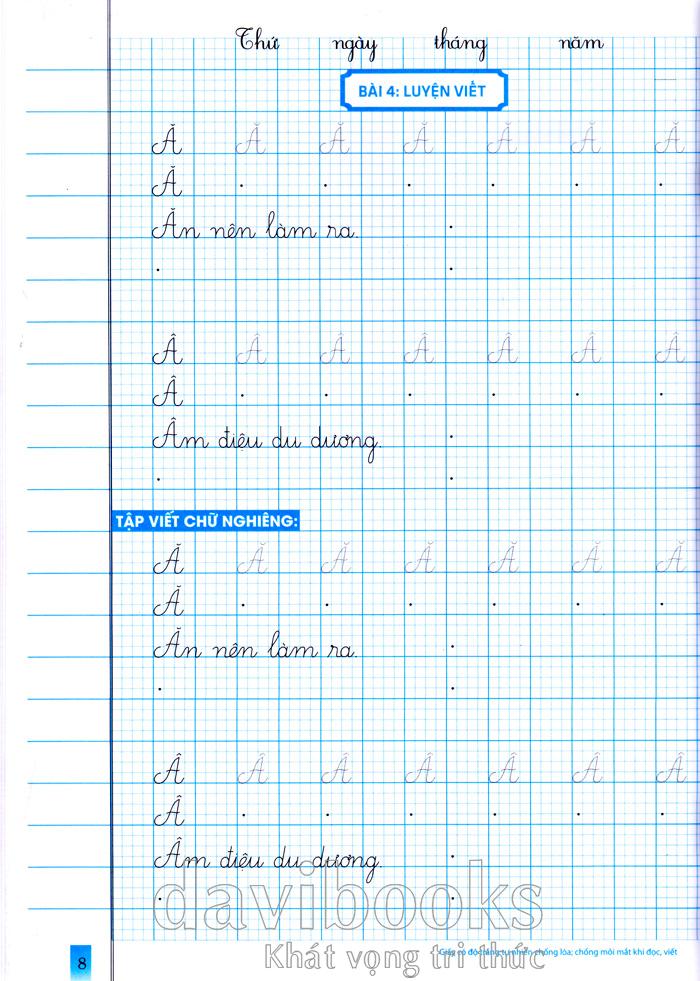 Thứ ngày tháng năm
BÀI 4: LUYỆN VIẾT
Ă Ă Ă Ă Ă Ă Ă
Ă . . . . . .
Ăn nên làm ra. .
. .
Â Â Â Â Â Â Â
Â . . . . . .
Âm điệu du dương. .
. .
TẬP VIẾT CHỮ NGHIÊNG:
Ă Ă Ă Ă Ă Ă Ă
Ă . . . . . .
Ăn nên làm ra. .
. .
Â Â Â Â Â Â Â
Â . . . . . .
Âm điệu du dương. .
. .
davibooks
Khát vọng tri thức
Giấy có độ trắng tự nhiên chống lóa; chống mỏi mắt khi đọc, viết
8